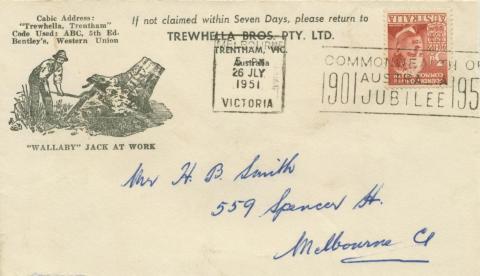 Cabic Address:
"Trewhella, Trentham"
Code Used: ABC, 5th Ed-
Bentley's, Western Union
"WALLABY" JACK AT WORK
If not claimed within Seven Days, please return to
TREWHELLA BROS. PTY. LTD.
TRENTHAM, VIC.
Australia
MELBOURNE
26 JLY
1951
VICTORIA
AUSTRALIA
COMMONWEALTH OF
1901 JUBILEE 195
Mr H. B. Smith
559 Spencer St.
Melbourne C1